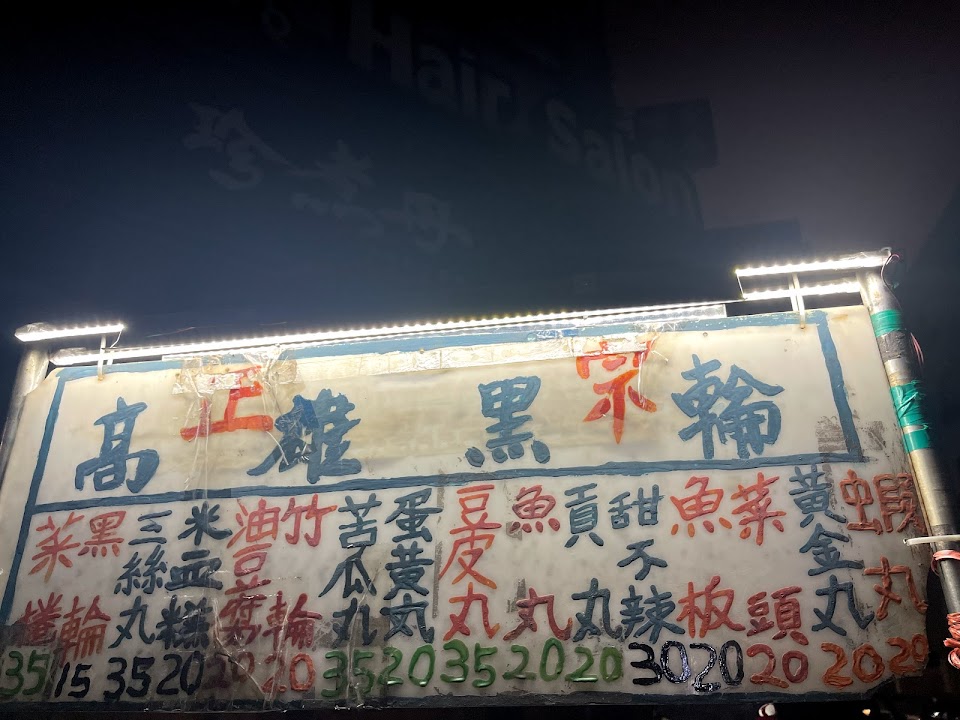 Hair Salon
珍煮丹
正宗
高雄黑輪
菜捲 35
黑輪 15
三絲丸 35
米血糕 20
油豆腐 20
竹輪 20
苦瓜丸 35
蛋黃丸 20
豆皮丸 35
魚丸 20
貢丸 20
甜不辣 30
魚板 20
菜頭 20
黃金丸 20
蝦丸 20